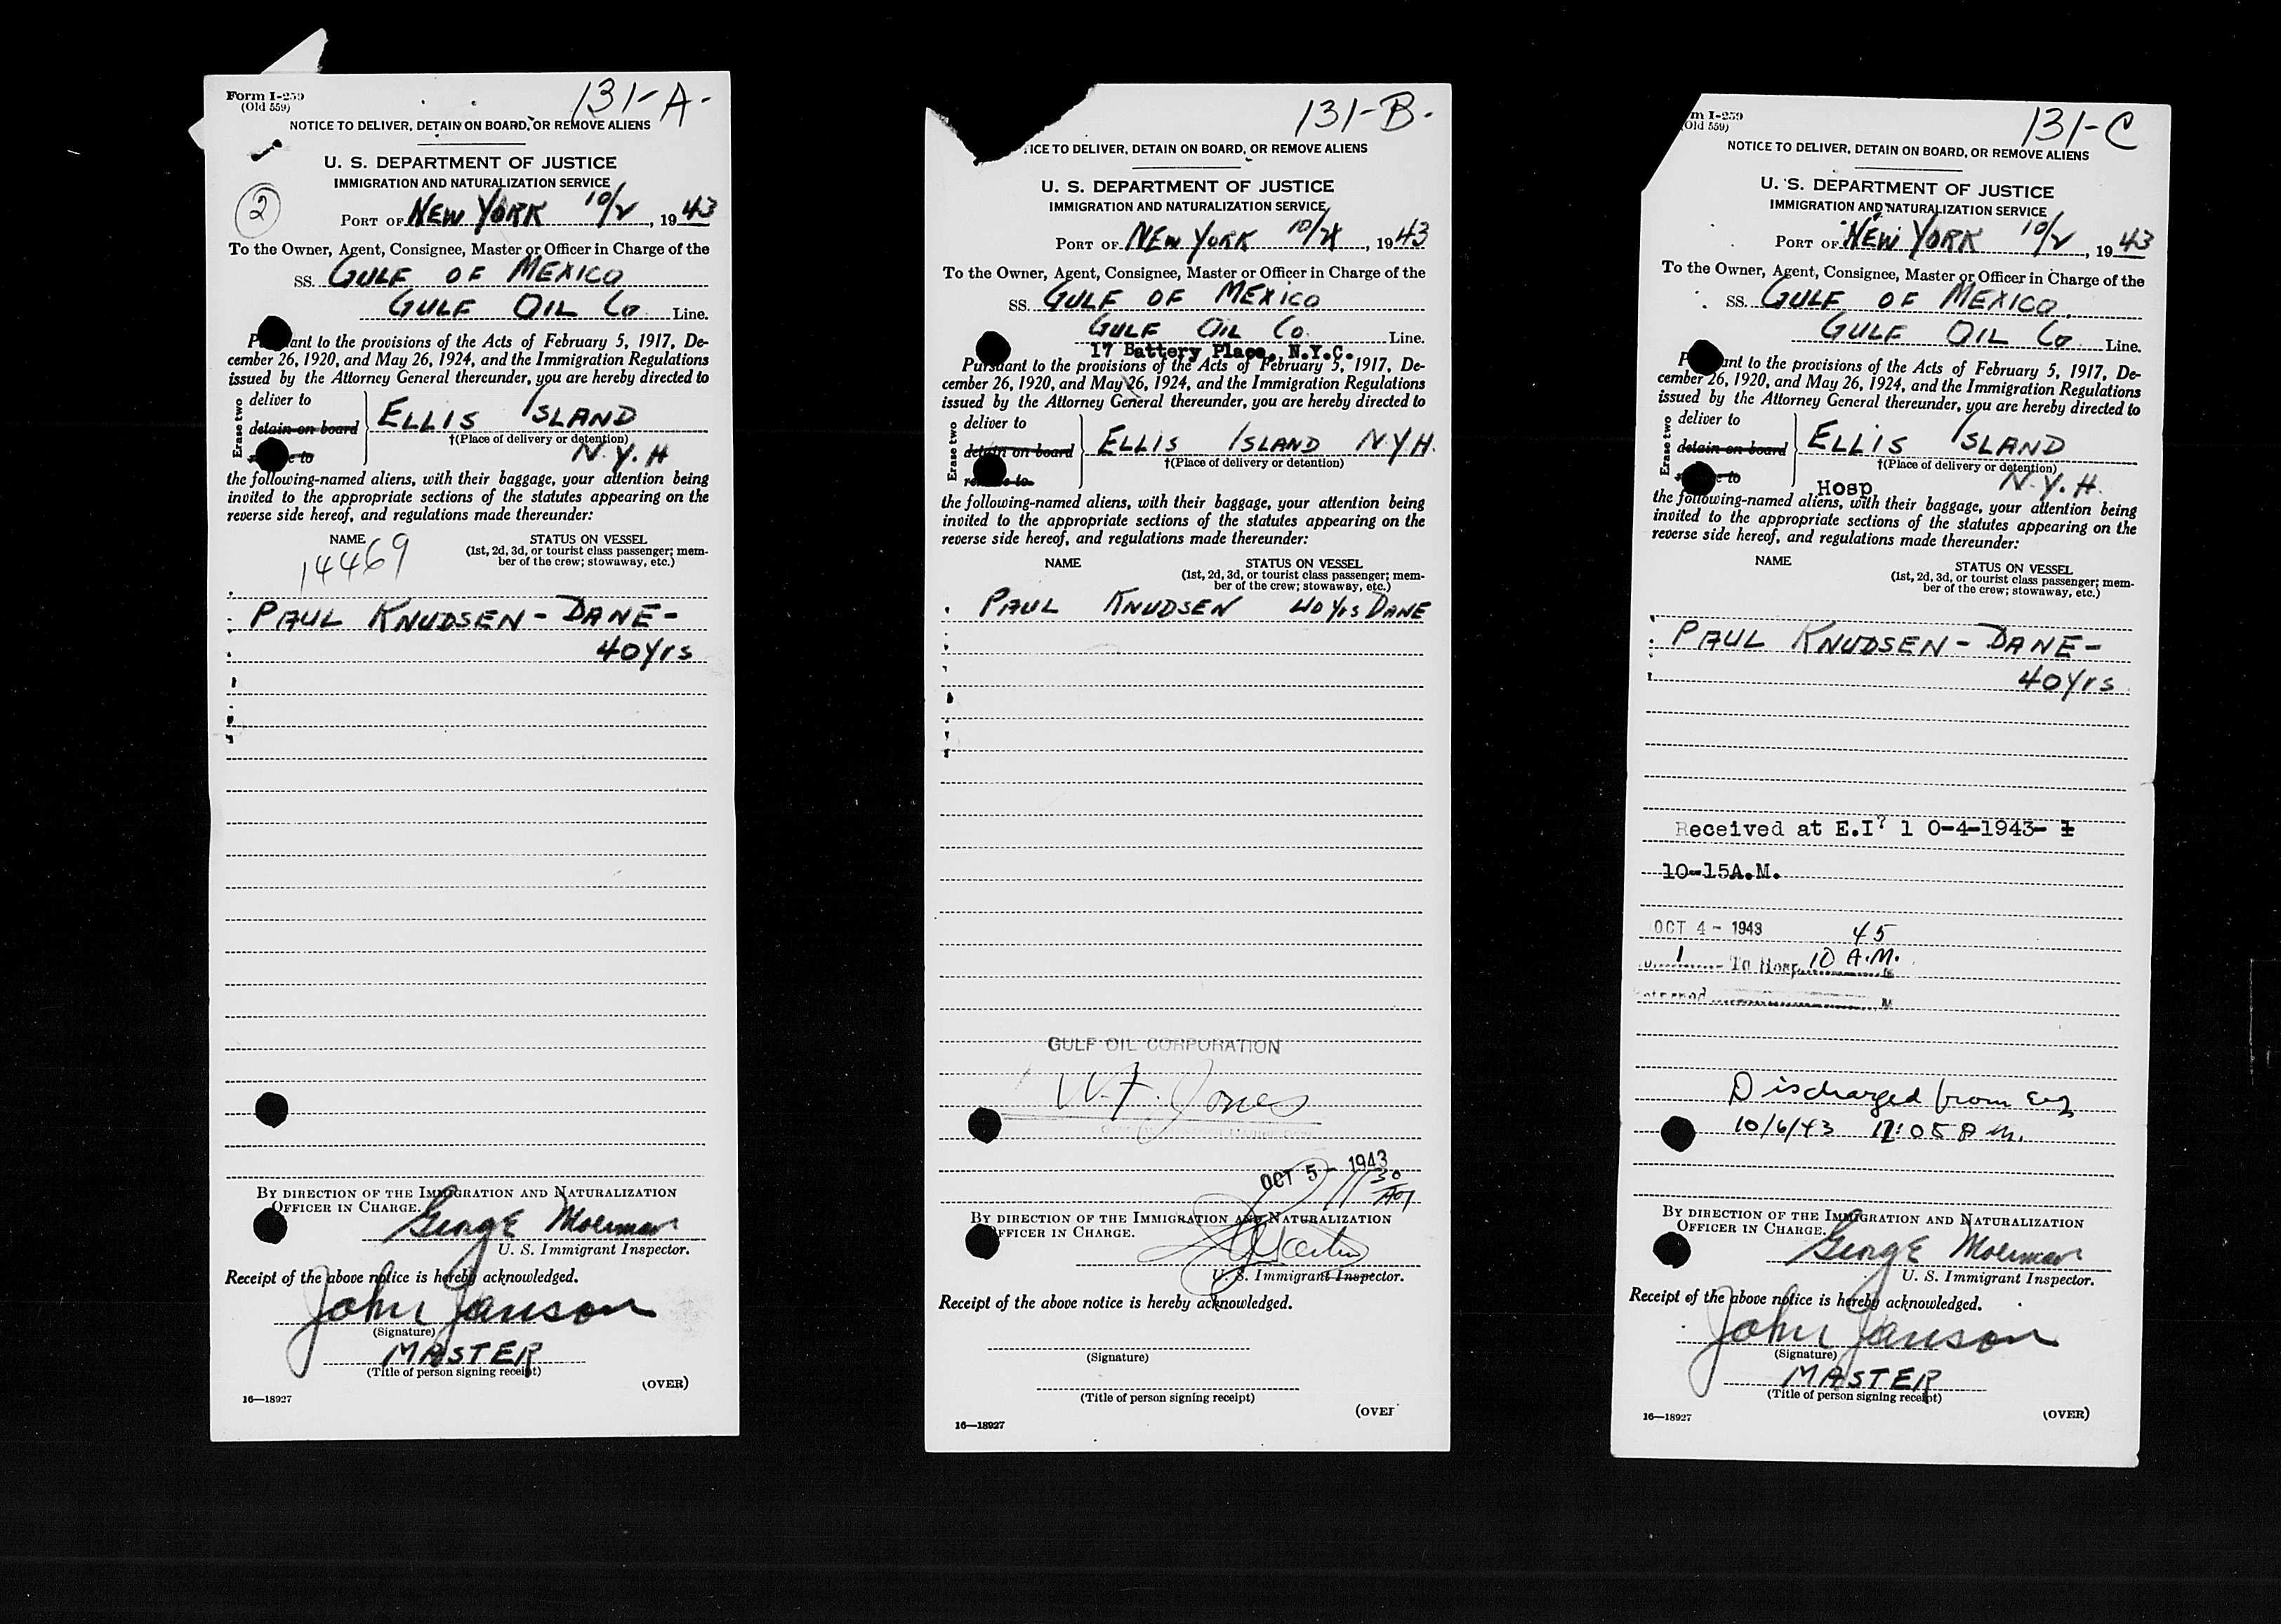 131-A-
Form I-259
(Old 559)
NOTICE TO DELIVER, DETAIN ON BOARD, OR REMOVE ALIENS
U. S. DEPARTMENT OF JUSTICE
IMMIGRATION AND NATURALIZATION SERVICE
2
PORT OF NEW YORK 10/2, 1943
To the Owner, Agent, Consignee, Master or Officer in Charge of the
SS. GULF OF MEXICO
GULF OIL Co Line.
ant to the provisions of the Acts of February 5, 1917, De-
cember 26, 1920, and May 26, 1924, and the Immigration Regulations
issued by the Attorney General thereunder, you are hereby directed to
Erase two
deliver to
detain on board
to
ELLIS ISLAND
†(Place of delivery or detention)
N.Y.H
the following-named aliens, with their baggage, your attention being
invited to the appropriate sections of the statutes appearing on the
reverse side hereof, and regulations made thereunder:
NAME STATUS ON VESSEL
(1st, 2d, 3d, or tourist class passenger; mem-
ber of the crew; stowaway, etc.)
14469
PAUL KNUDSEN - DANE -
40 Yrs
BY DIRECTION OF THE IMMIGRATION AND NATURALIZATION
OFFICER IN CHARGE.
George
U. S. Immigrant Inspector.
Receipt of the above notice is hereby acknowledged.
John Janson
(Signature)
MASTER
(Title of person signing receipt)
(OVER)
16—18927
131-B-
ICE TO DELIVER, DETAIN ON BOARD, OR REMOVE ALIENS
U. S. DEPARTMENT OF JUSTICE
IMMIGRATION AND NATURALIZATION SERVICE
PORT OF NEW YORK 10/, 1943
To the Owner, Agent, Consignee, Master or Officer in Charge of the
SS. GULF OF MEXICO
GULF OIL Co. Line.
17 Battery Place, N.Y.C.
Pursuant to the provisions of the Acts of February 5, 1917, De-
cember 26, 1920, and May 26, 1924, and the Immigration Regulations
issued by the Attorney General thereunder, you are hereby directed to
Erase two
deliver to
detain on board
to
ELLIS ISLAND N.Y.H.
†(Place of delivery or detention)
the following-named aliens, with their baggage, your attention being
invited to the appropriate sections of the statutes appearing on the
reverse side hereof, and regulations made thereunder:
NAME STATUS ON VESSEL
(1st, 2d, 3d, or tourist class passenger; mem-
ber of the crew; stowaway, etc.)
PAUL KNUDSEN 40 Yrs DANE
GULF OIL CORPORATION
W.F. Jones
OCT 5 - 1943
11 30 AM
BY DIRECTION OF THE IMMIGRATION AND NATURALIZATION
OFFICER IN CHARGE.
U. S. Immigrant Inspector.
Receipt of the above notice is hereby acknowledged.
(Signature)
(Title of person signing receipt)
(OVER
16—18927
131-C
m I-259
(Old 559)
NOTICE TO DELIVER, DETAIN ON BOARD, OR REMOVE ALIENS
U. S. DEPARTMENT OF JUSTICE
IMMIGRATION AND NATURALIZATION SERVICE
PORT OF NEW YORK 10/2, 1943
To the Owner, Agent, Consignee, Master or Officer in Charge of the
SS. GULF OF MEXICO
GULF OIL Co Line.
ant to the provisions of the Acts of February 5, 1917, De-
cember 26, 1920, and May 26, 1924, and the Immigration Regulations
issued by the Attorney General thereunder, you are hereby directed to
Erase two
deliver to
detain on board
to
ELLIS ISLAND
†(Place of delivery or detention)
Hosp N.Y.H.
the following-named aliens, with their baggage, your attention being
invited to the appropriate sections of the statutes appearing on the
reverse side hereof, and regulations made thereunder:
NAME STATUS ON VESSEL
(1st, 2d, 3d, or tourist class passenger; mem-
ber of the crew; stowaway, etc.)
PAUL KNUDSEN - DANE -
40 Yrs
Received at E.I? 1 0-4-1943- 1
10-15A.M.
OCT 4 - 1943 45
1 To Hosp 10 A.M.
M
Discharged from
10/6/43 12:05 P.M.
BY DIRECTION OF THE IMMIGRATION AND NATURALIZATION
OFFICER IN CHARGE.
George
U. S. Immigrant Inspector.
Receipt of the above notice is hereby acknowledged.
John Janson
(Signature)
MASTER
(Title of person signing receipt)
16—18927
(OVER)